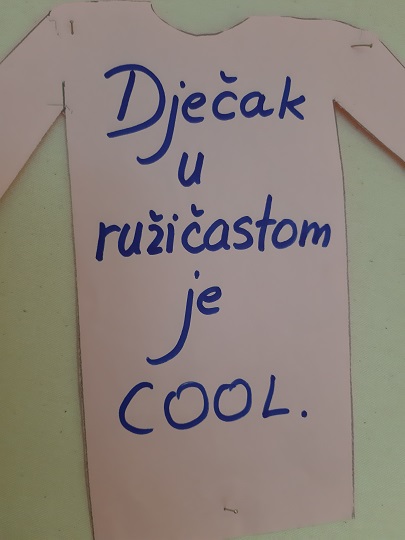 Dječak
u
ružičastom
je
COOL.